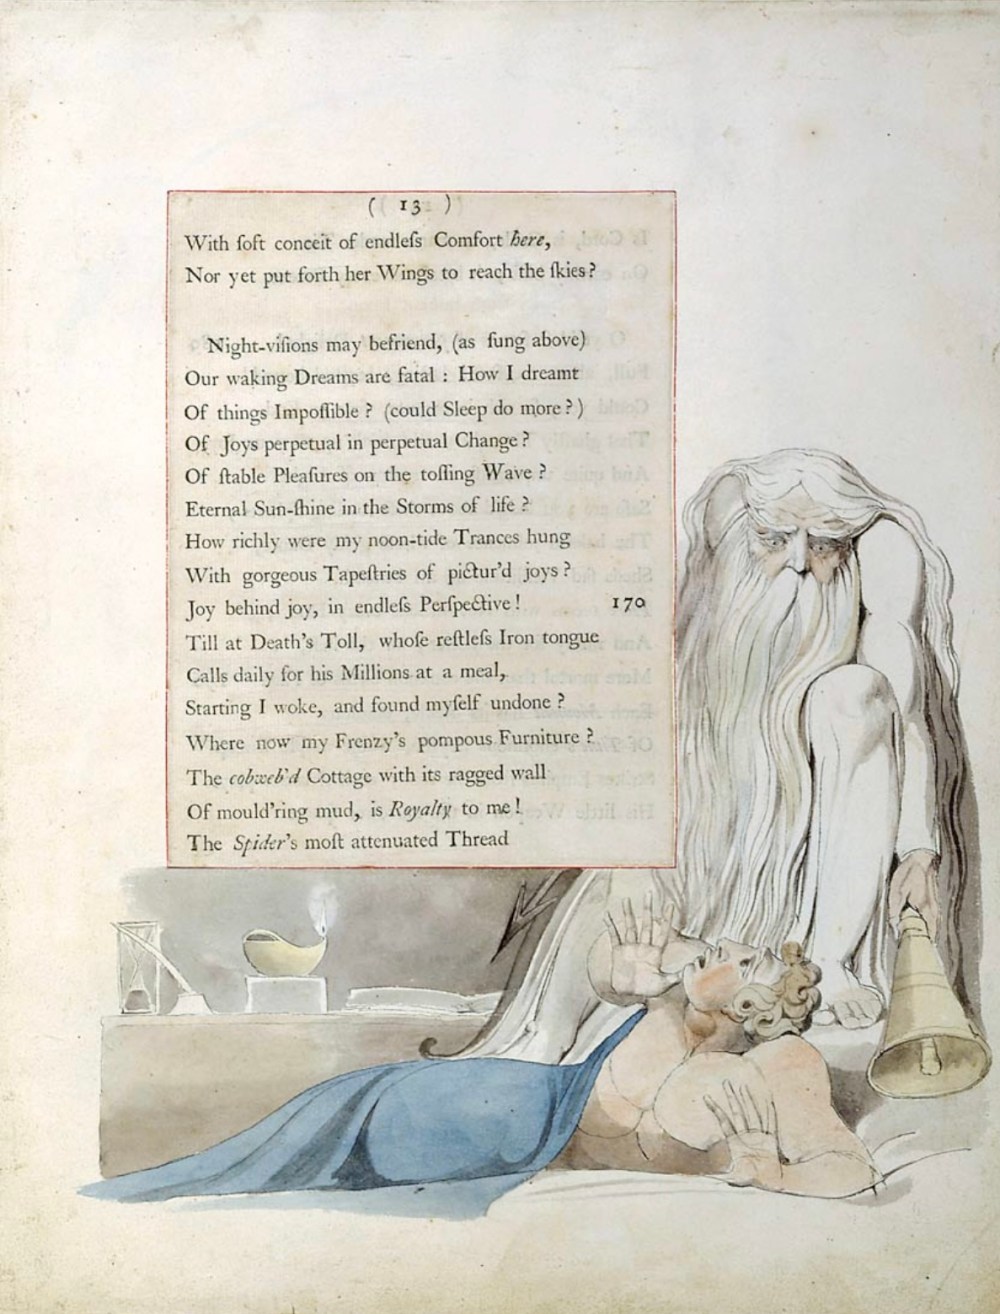 ( 13 )
With ſoft conceit of endleſs Comfort here,
Nor yet put forth her Wings to reach the ſkies?
Night-viſions may befriend, (as ſung above)
Our waking Dreams are fatal : How I dreamt
Of things Impoſſible ? (could Sleep do more ?)
Of Joys perpetual in perpetual Change ?
Of ſtable Pleaſures on the toſſing Wave ?
Eternal Sun-ſhine in the Storms of life ?
How richly were my noon-tide Trances hung
With gorgeous Tapeſtries of pictur'd joys ?
Joy behind joy, in endleſs Perſpective ! 170
Till at Death's Toll, whoſe reſtleſs Iron tongue
Calls daily for his Millions at a meal,
Starting I woke, and found myſelf undone ?
Where now my Frenzy's pompous Furniture ?
The cobweb'd Cottage with its ragged wall
Of mould'ring mud, is Royalty to me !
The Spider's moſt attenuated Thread